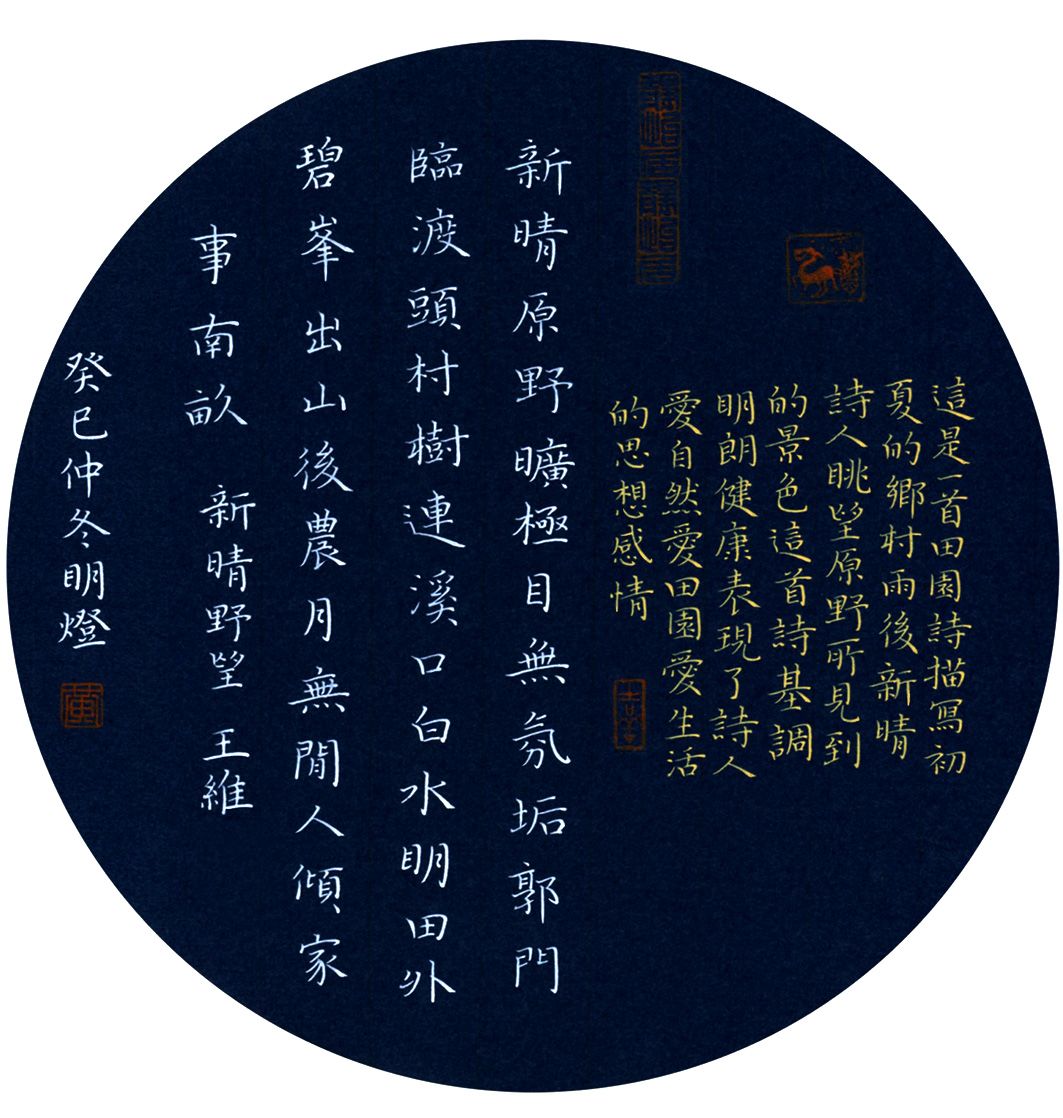 這是一首田園詩描寫初
夏的鄉村雨後新晴
詩人眺望原野所見到
的景色這首詩基調
明朗健康表現了詩人
愛自然愛田園愛生活
的思想感情
新晴原野曠極目無氛垢郭門
臨渡頭村樹連溪口白水明田外
碧峯出山後農月無閒人傾家
事南畝 新晴野望 王維
癸巳仲冬明燈